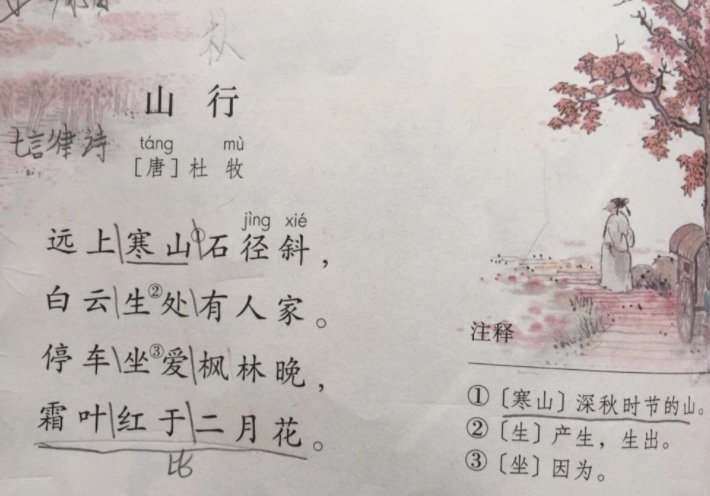 秋
山行
七言律诗
táng mù
[唐]杜牧
jìng xié
远上寒山①石径斜，
白云生②处有人家。
停车坐③爱枫林晚，
霜叶红于二月花。
比
注释
①〔寒山〕深秋时节的山。
②〔生〕产生，生出。
③〔坐〕因为。